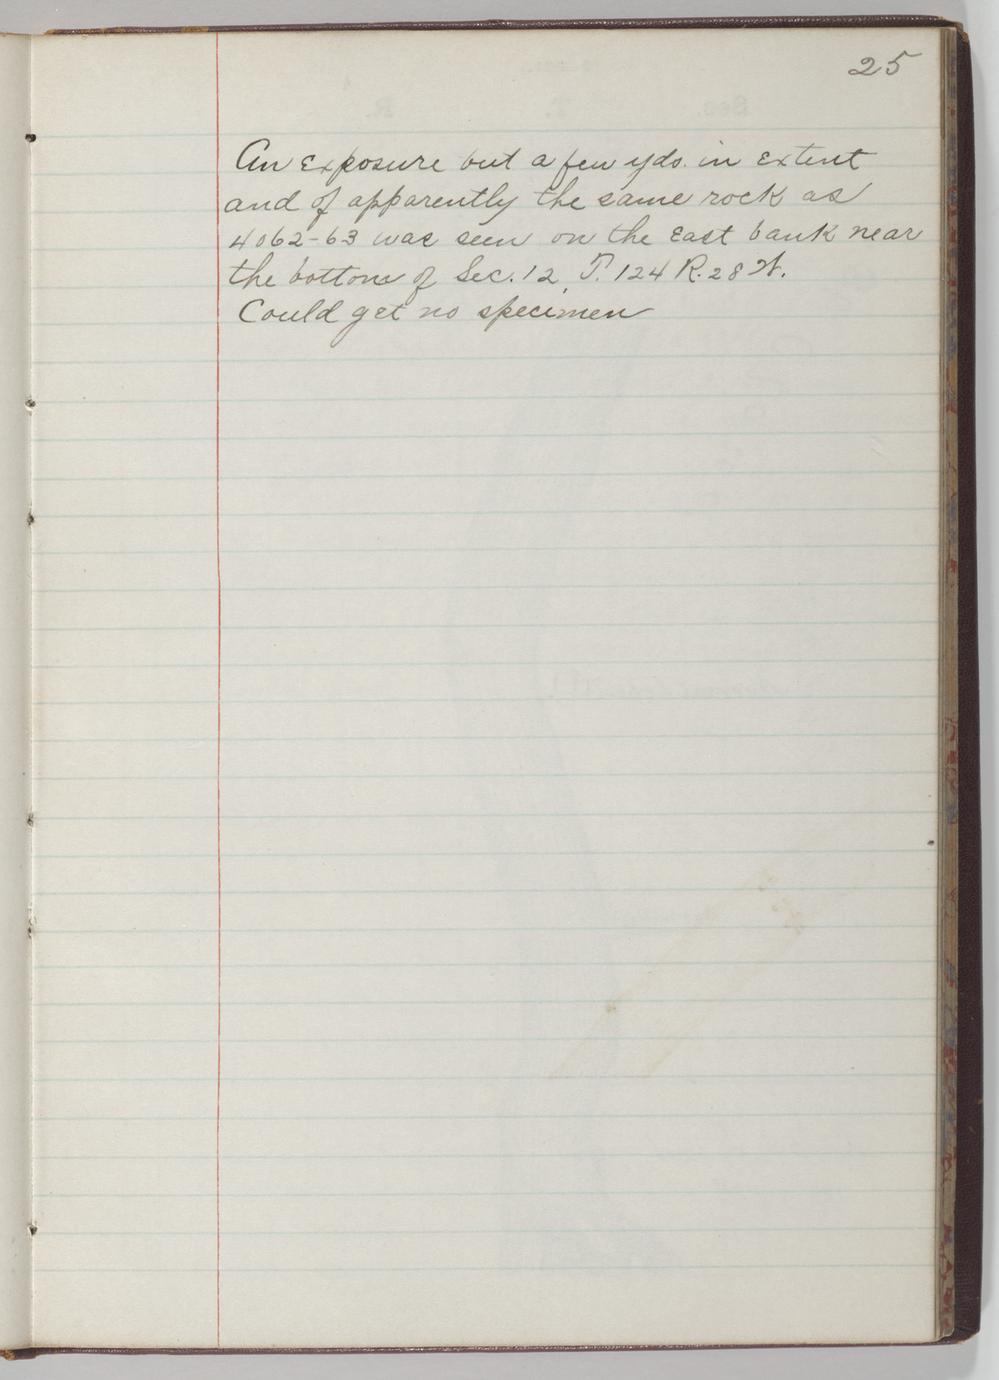 25
An exposure but a few yds. in extent
and of apparently the same rock as
4062-63 was seen on the East bank near
the bottom of Sec. 12, T. 124 R. 28 W.
Could get no specimen